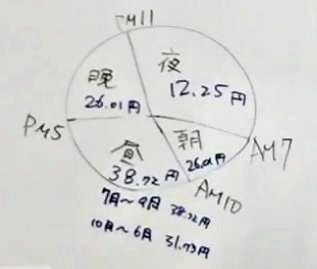 PM11
夜
12.25円
晩
26.01円
PM5
朝
26.01円
AM7
昼
38.72円
AM10
7月～9月 38.72円
10月～6月 31.73円